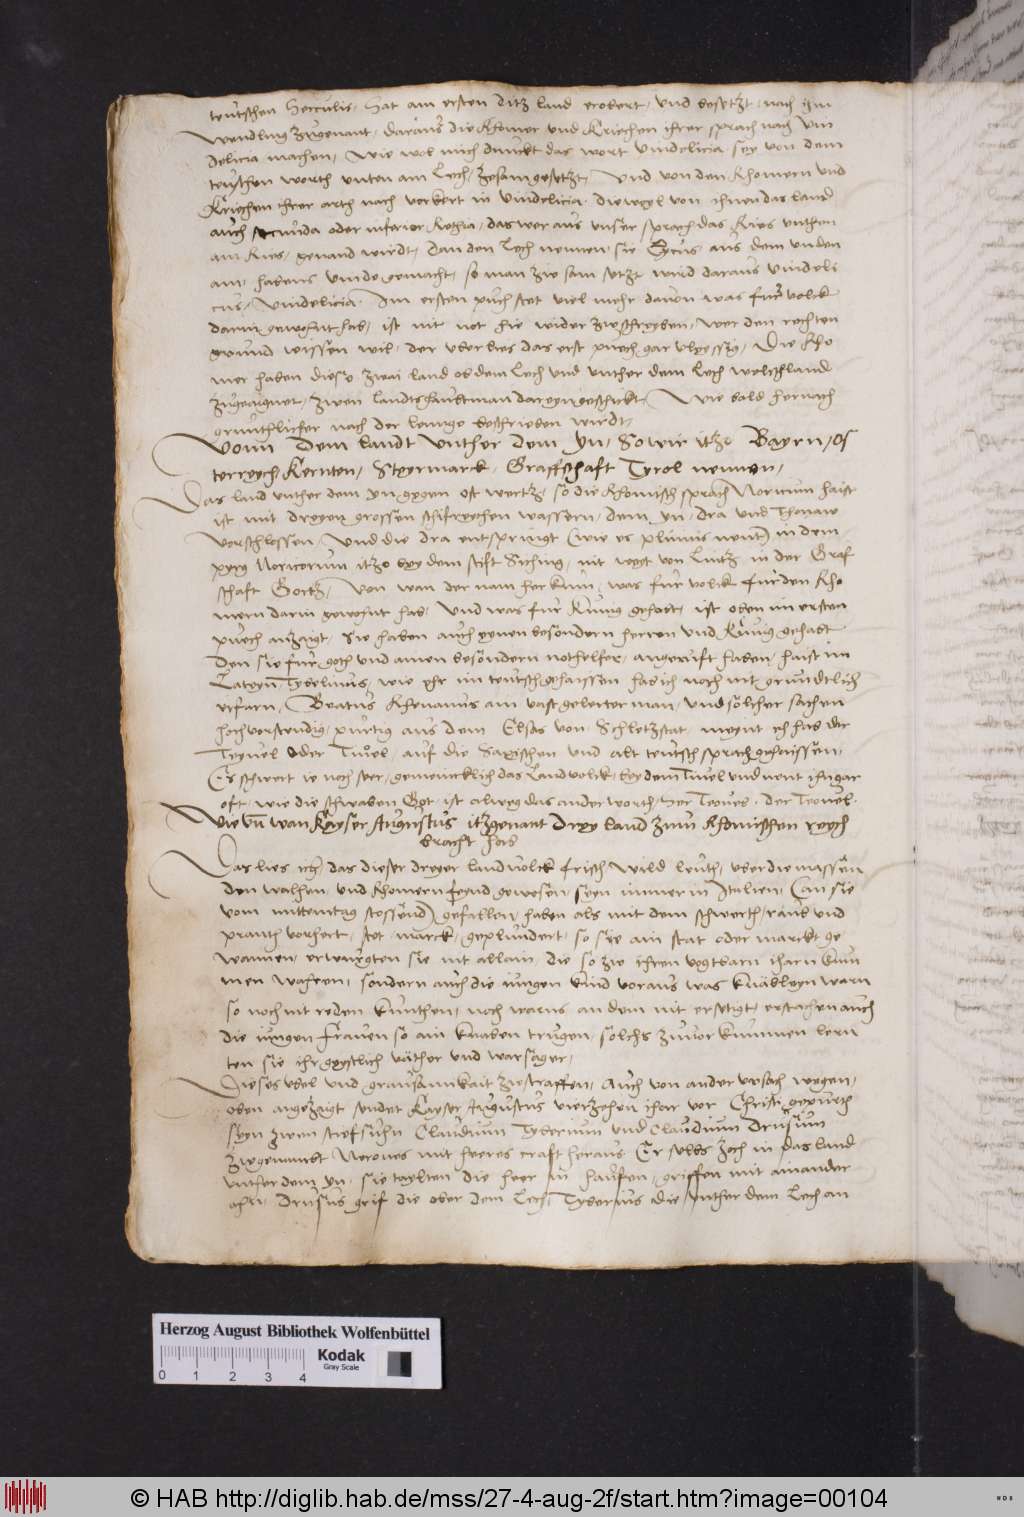 teutschen Herculis, Hat am ersten ditz land erobert, und besetzt, nach im
Wendling zugenant, daraus die Rhomer und Kriechen ihrer sprach nach Vin
delicia machen, Wie wol mich dunckt das wort Vindelicia sey von dem
teuschen worth unten am Lech, zesam gesetzt, Und von den Rhomern und
Kriechen ihrer arth nach verkert in Vindelicia, dieweyl von ihnen das land
auch secunda oder inferior Rethia, das wer aus unser sprach das Ries unthen
am Ries, genand wirdt, dan den Lech nennen sie Licus aus dem unden
am, habens vinde gemacht, so man zw sam setzt wird daraus Vindeli
cus, Vindelicia. Im ersten puch stet viel mehr davon was fur volck
darin gewohnt hab, ist nit not hie wider zwschreyben, wer den rechten
grund wissen wil, der uberles das erst puech gar vleyssig, Die Rho
mer haben diese zwai land ob dem Lech und unther dem Lech welschland
zugeaignet, zwen landtshaubtman dareyn geschickt, Wie bald hernach
grunthlicher nach der lennge beschrieben wirdt,
Vonn dem landt unther dem Yn, So wir itzo Bayrn, Os
terreych, Kernten, Steyrmarck, Graffschaft Tyrol nennen,
Das land unther dem Yn gegen ost wertz, so die Rhomisch sprach Noricum haist
ist mit dreyen grossen schifreychen wassern, dem Yn, Dra und Thonaw
verschlossen, Und die Dra entspringt (wie es Plinius nent) in dem
pyrg Noricorum itzo bey dem stift Iniching, nit weyt von Lüntz in der Graf
schaft Gortz, Von wan der nam her kum, was fur volck fur den Rho
mern darin gewohnt hab, Und was fur Kunig gehabt, ist oben im ersten
puech anzaigt, Sie haben auch eynen besondern herren und Kunig gehabt
den sie fur goth und ainen besondern nothelfer, angeruft haben, haist im
Lateyn Tybelinus, wie ehr im teutsch gehaissen hab ich noch nit grundtlich
erfarn, Beatus Rhenanus ain vast gelerter man, und solcher sachen
hoch verstendig, purtig aus dem Elsas von Schletzstat, meynt eh hab der
Teyuel oder Tiuel, auf die Saxischen und alt teutsch sprach gehaissen,
Er schwert ie noch ser, gemeincklich das Landvolck, bey dem Tiuel und nent ihn gar
oft, wie die schwaben Got ist alweg das ander worth, Her Teouel, der Teouel.
Wie un wan Kayser Augustus itzgenant Drey land zum Rhomischen reych
bracht hab
Das lies ich, das dieser dreyer landvolck frisch wild leuth, uber die massen
den walhen, und Rhomern feynd gewesen, seyn immer in Italien, (an sie
vom mittemtag stossend) gefallen, haben als mit dem schwerth, raub und
pranth verhert, stet, marck, geplundert, so sie ain stat oder marckt ge
wannen, erwurgten sie nit allain, die so zw ihren vogtbarn iharn kum
men wahren, sondern auch die iungen kind voraus was knäbleyn warn
so noch nit reden kunthen, noch warns an dem nit ersetigt, erstachen auch
die iungen frauen so ain knaben trugen, solchs zuvor kummen lern
ten sie ihr geystlich väther und warsager,
Dieses ubel und grausamkait zwstraffen, Auch von ander ursach wegen,
oben angezaigt sendet Kayser Augustus vierzehen ihar vor Christi gepurth
seyn zwen stiefsuhn Claudium Tyberium und Claudium Drusum
zwgenambt Nerones mit heeres craft heraus Er selbs zoch in das land
unther dem Yn, sie taylten die heer in haufen, griffen mit ainander
ahn, Drusus grif die ober dem Lech, Tyberius die unther dem Lech an
Herzog August Bibliothek Wolfenbüttel
Kodak
Gray Scale
0 1 2 3 4
© HAB http://diglib.hab.de/mss/27-4-aug-2f/start.htm?image=00104